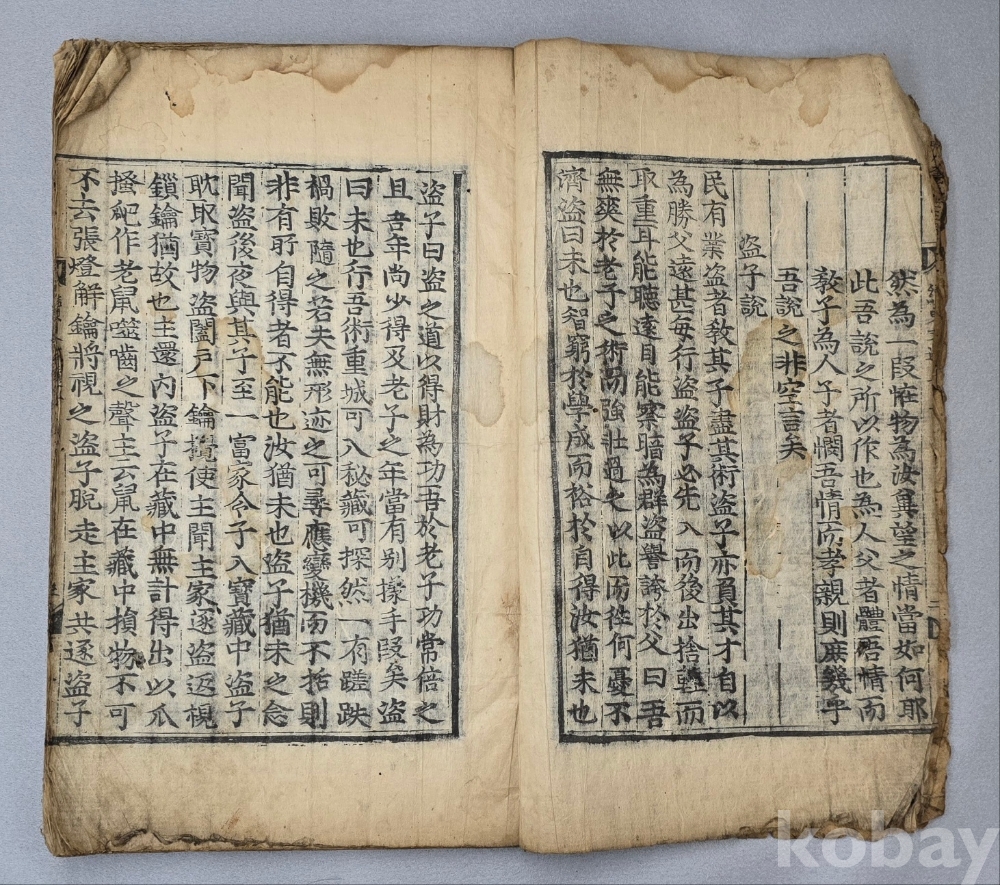 然為一段恠物為汝冀望之情當如何耶
此吾說之所以作也為人父者體吾情而
敎子為人子者憫吾情而孝親則庶幾乎
吾說之非空言矣
盜子說
民有業盜者敎其子盡其術盜子亦負其才自以
為勝父遠甚每行盜盜子必先入而後出捨輕而
取重耳能聽遠目能察暗為群盜譽誇於父曰吾
無爽於老子之術而強壯過之以此而徃何憂不
濟盜曰未也智窮於學成而裕於自得汝猶未也
盜子曰盜之道以得財為功吾於老子功常倍之
且吾年尚少得及老子之年當有別㨾手段矣盜
曰未也行吾術重城可入秘藏可探然一有蹉跌
禍敗隨之若夫無形迹之可尋應變機而不括則
非有所自得者不能也汝猶未也盜子猶未之念
聞盜後夜與其子至一富家令子入寶藏中盜子
耽取寶物盜闔戶下鑰攪使主聞主家逐盜返視
鎖鑰猶故也主還內盜子在藏中無計得出以爪
搔爬作老䑕噬嚙之聲主云䑕在藏中損物不可
不去張燈解鑰將視之盜子脫走主家共逐盜子
kobay